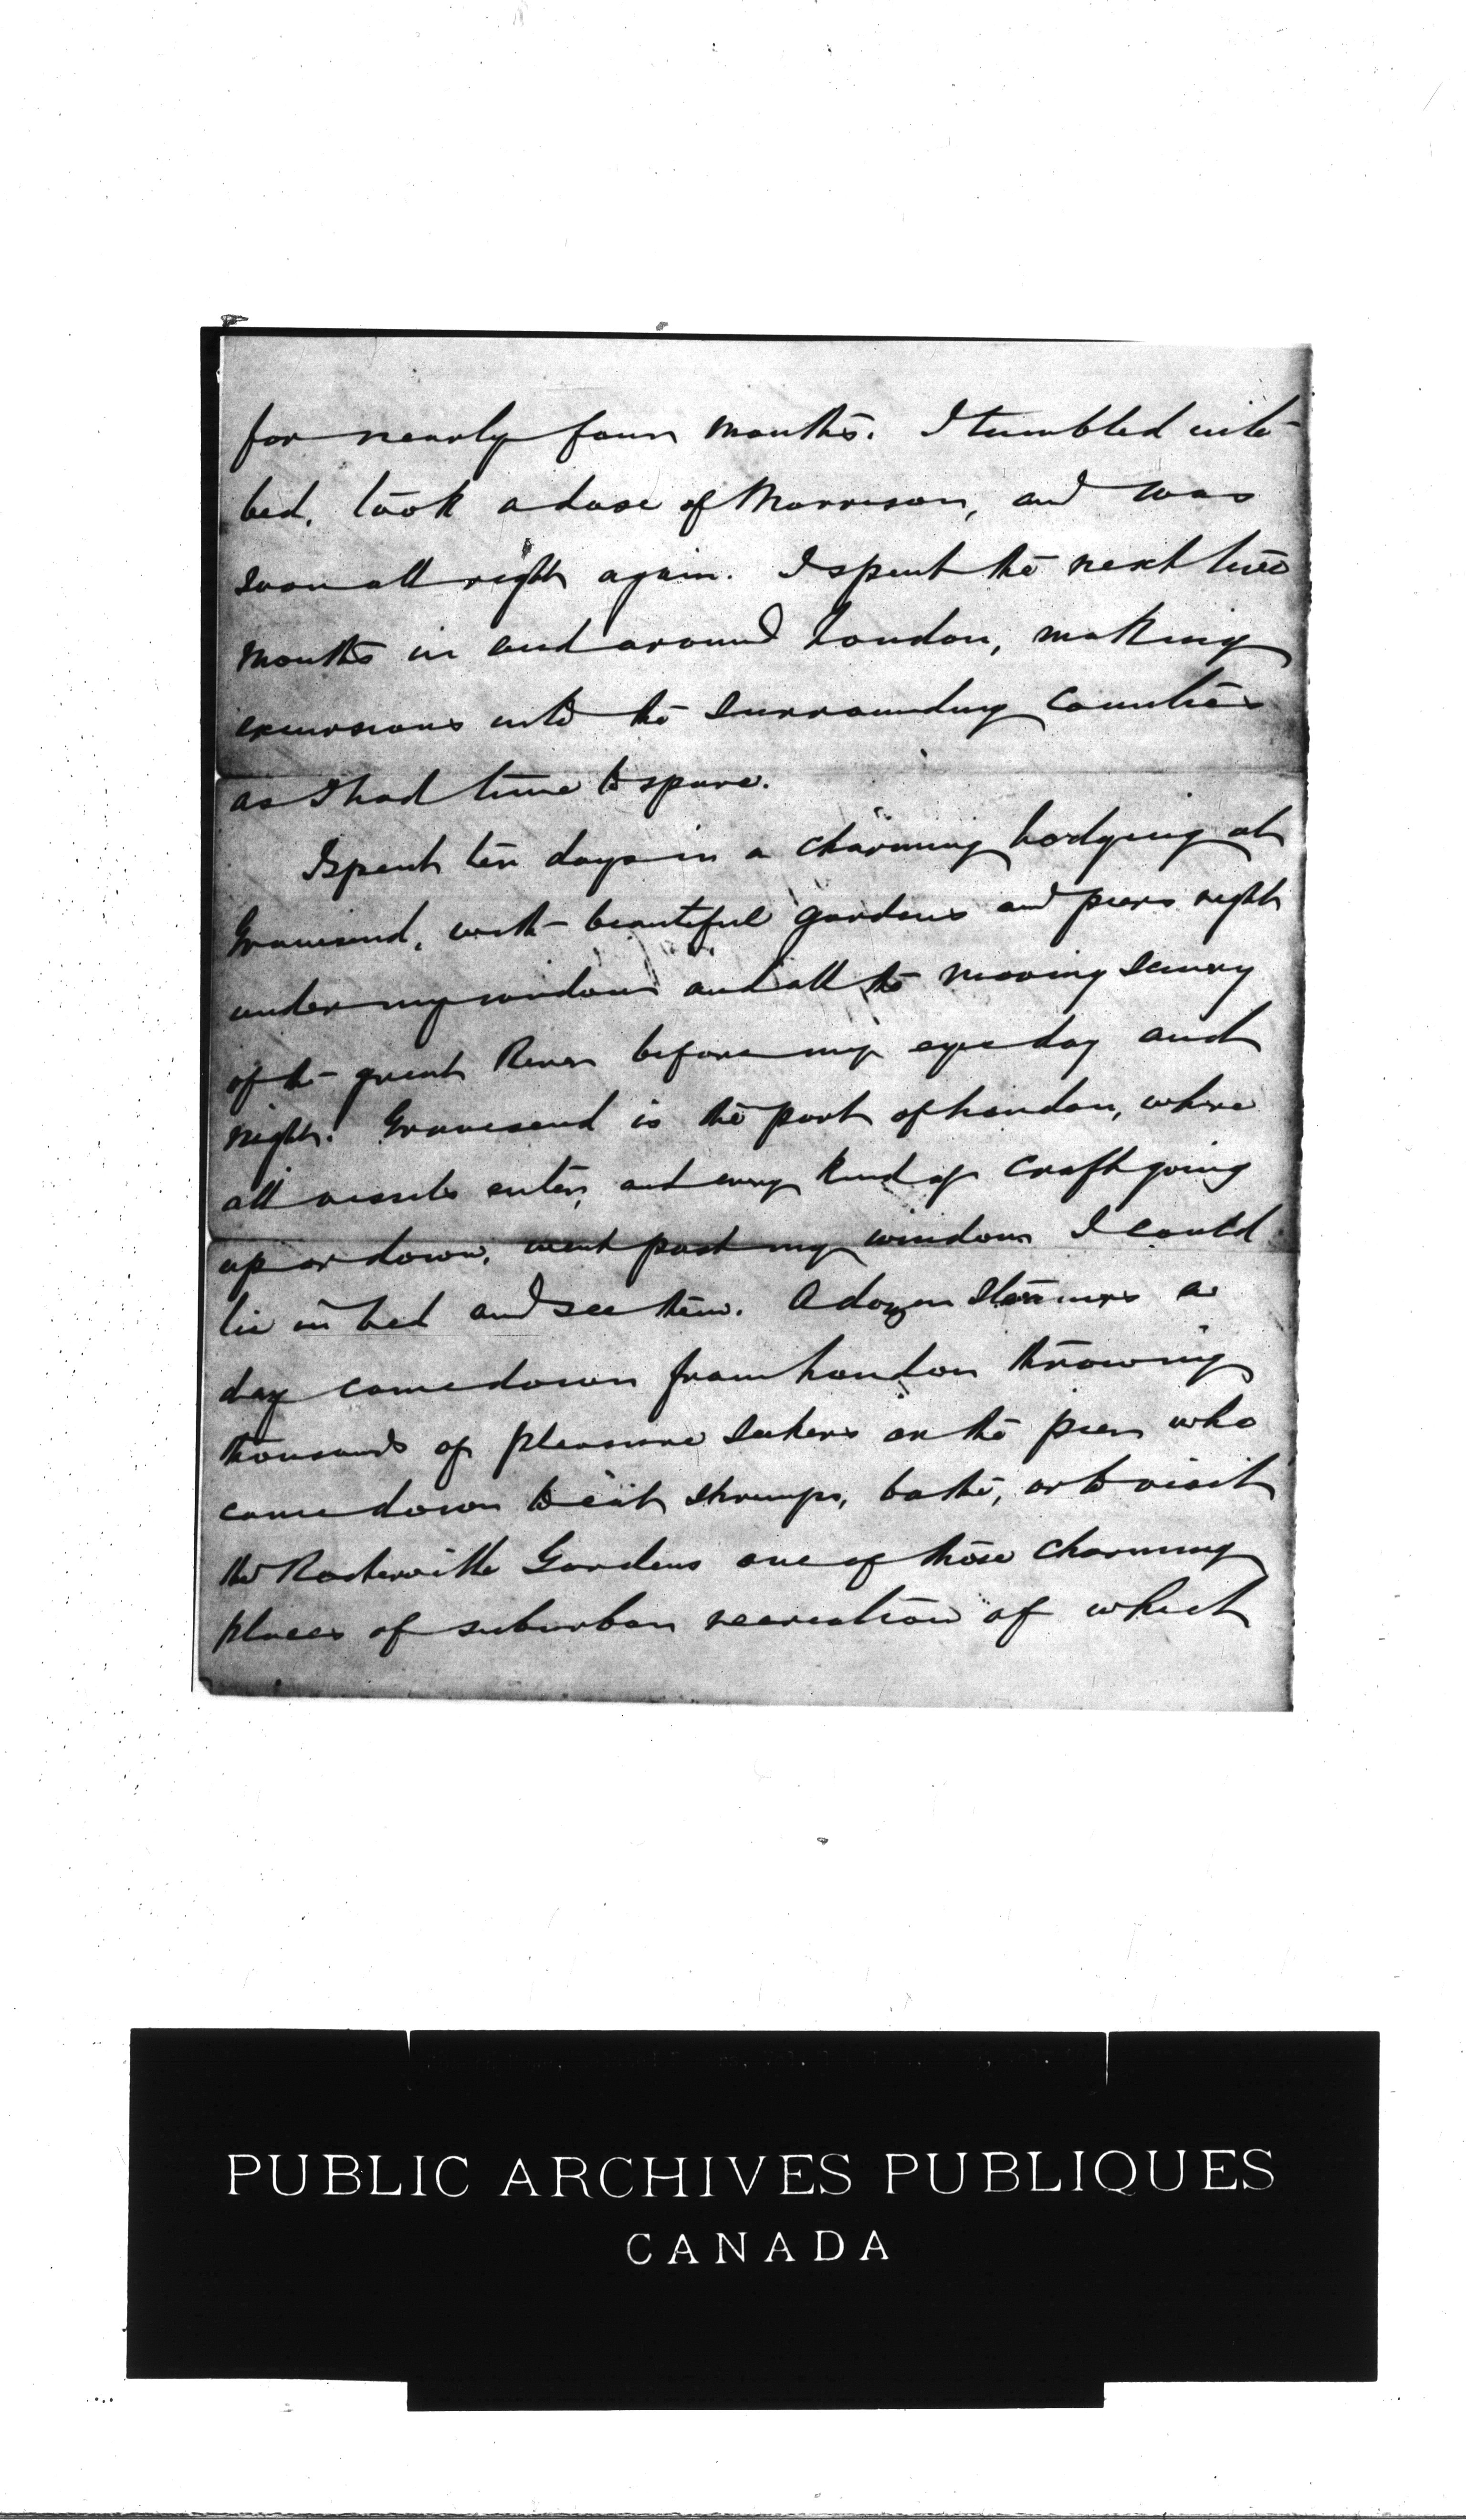 for nearly four months. I tumbled into
bed, took a dose of Morrison, and was
soon all right again. I spent the next two
months in and around London, making
excursions into the surrounding Counties
as I had time to spare.
I spent ten days in a charming Lodging at
Gravesend, with beautiful gardens and piers right
under my window and all the moving scenery
of the great River before my eye day and
night. Gravesend is the port of London, where
all vessels enter, and every kind of craft going
up or down, went past my window I could
lie in bed and see them. A dozen Steamers a
day came down from London throwing
thousands of pleasure seekers on the pier who
came down to eat shrimps, bathe, or to visit
the Rosherville Gardens one of those charming
places of suburban recreation of which
PUBLIC ARCHIVES PUBLIQUES
CANADA